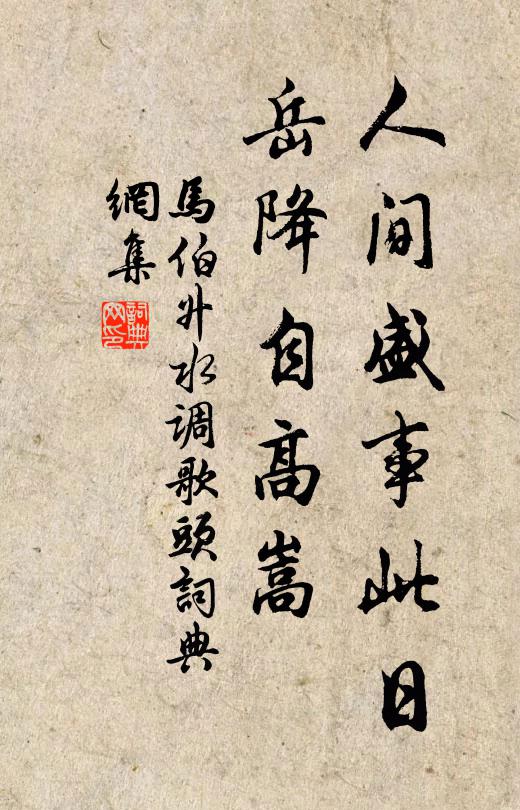 人间盛事此日
岳降自高嵩
馬伯升水调歌頭詞典
網集
詞典
网印